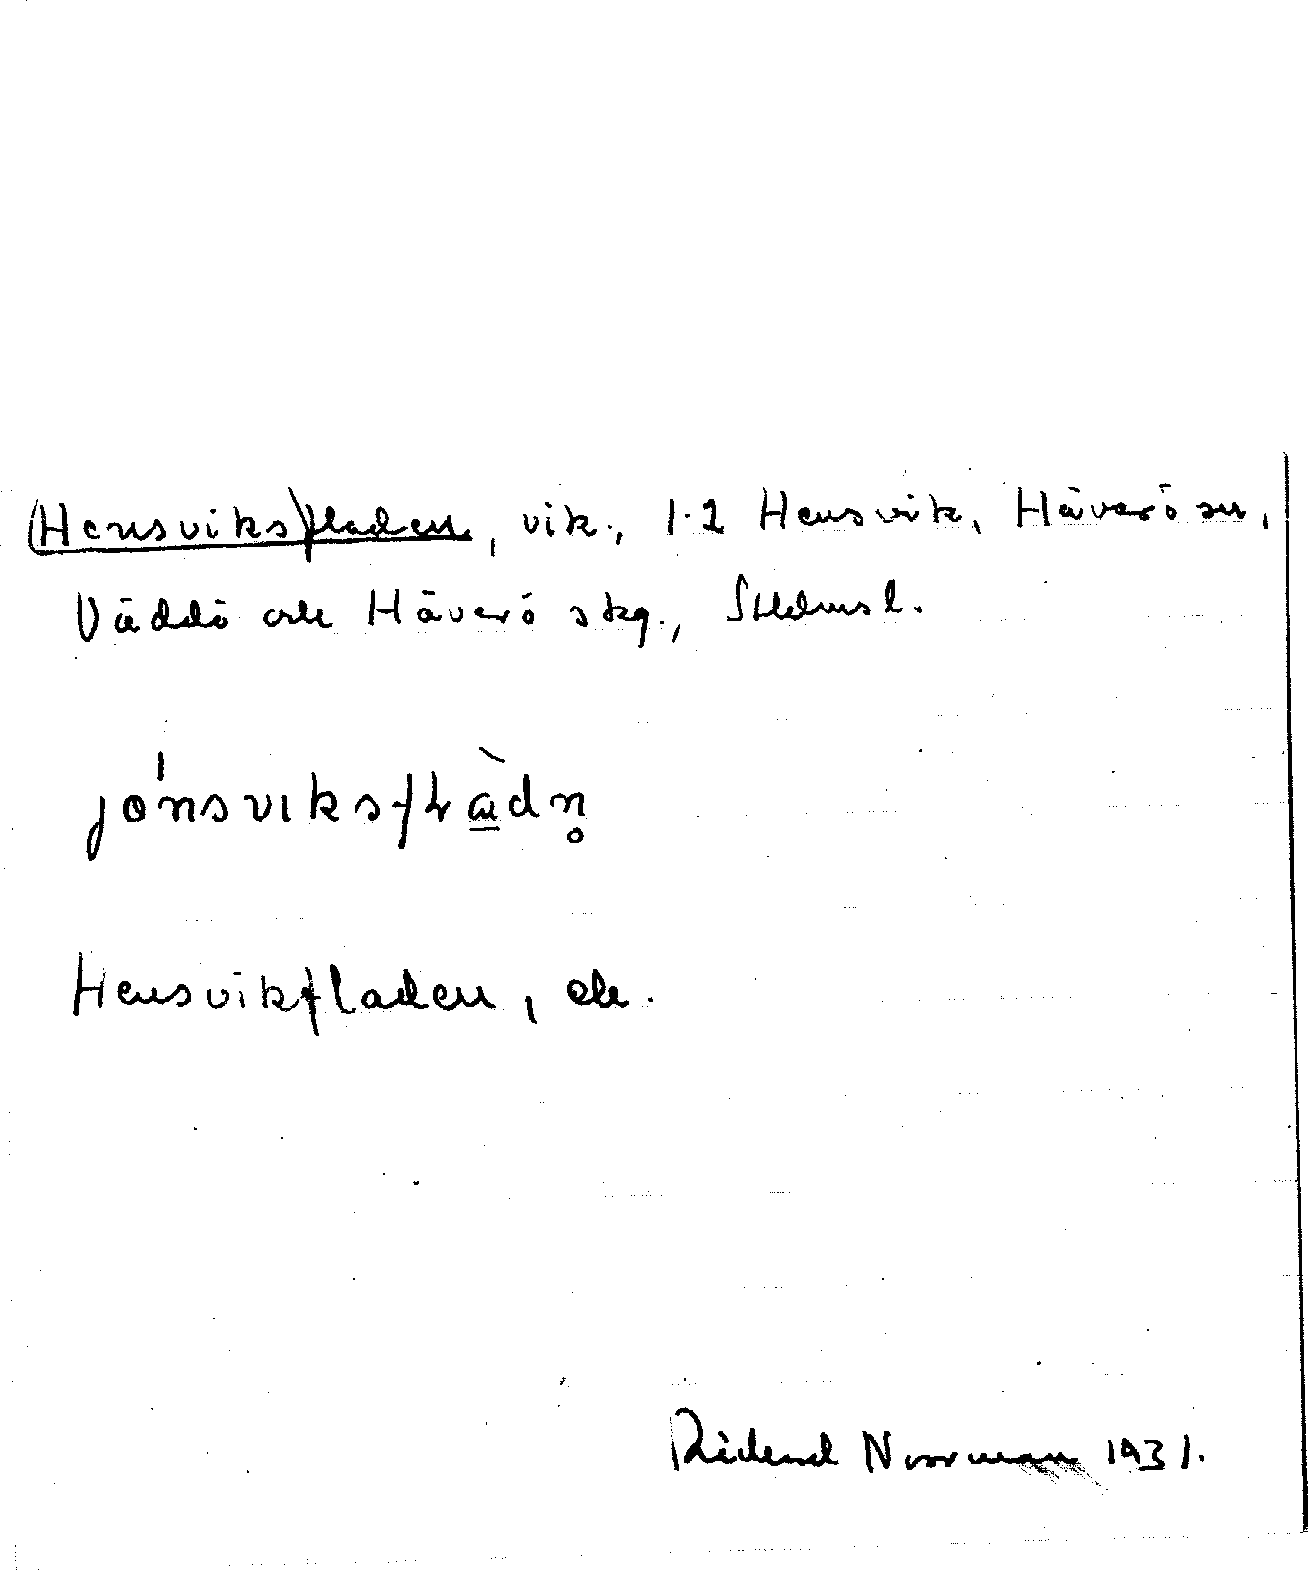 (Hensviks)fladen, vik, 1·2 Hensvik, Häverö sn,
Väddö och Häverö skg., Sthlms l.
jo̍nsviksfꞭàdn̥
Hensviksfladen, ek.
Rickard Norrman 1931.